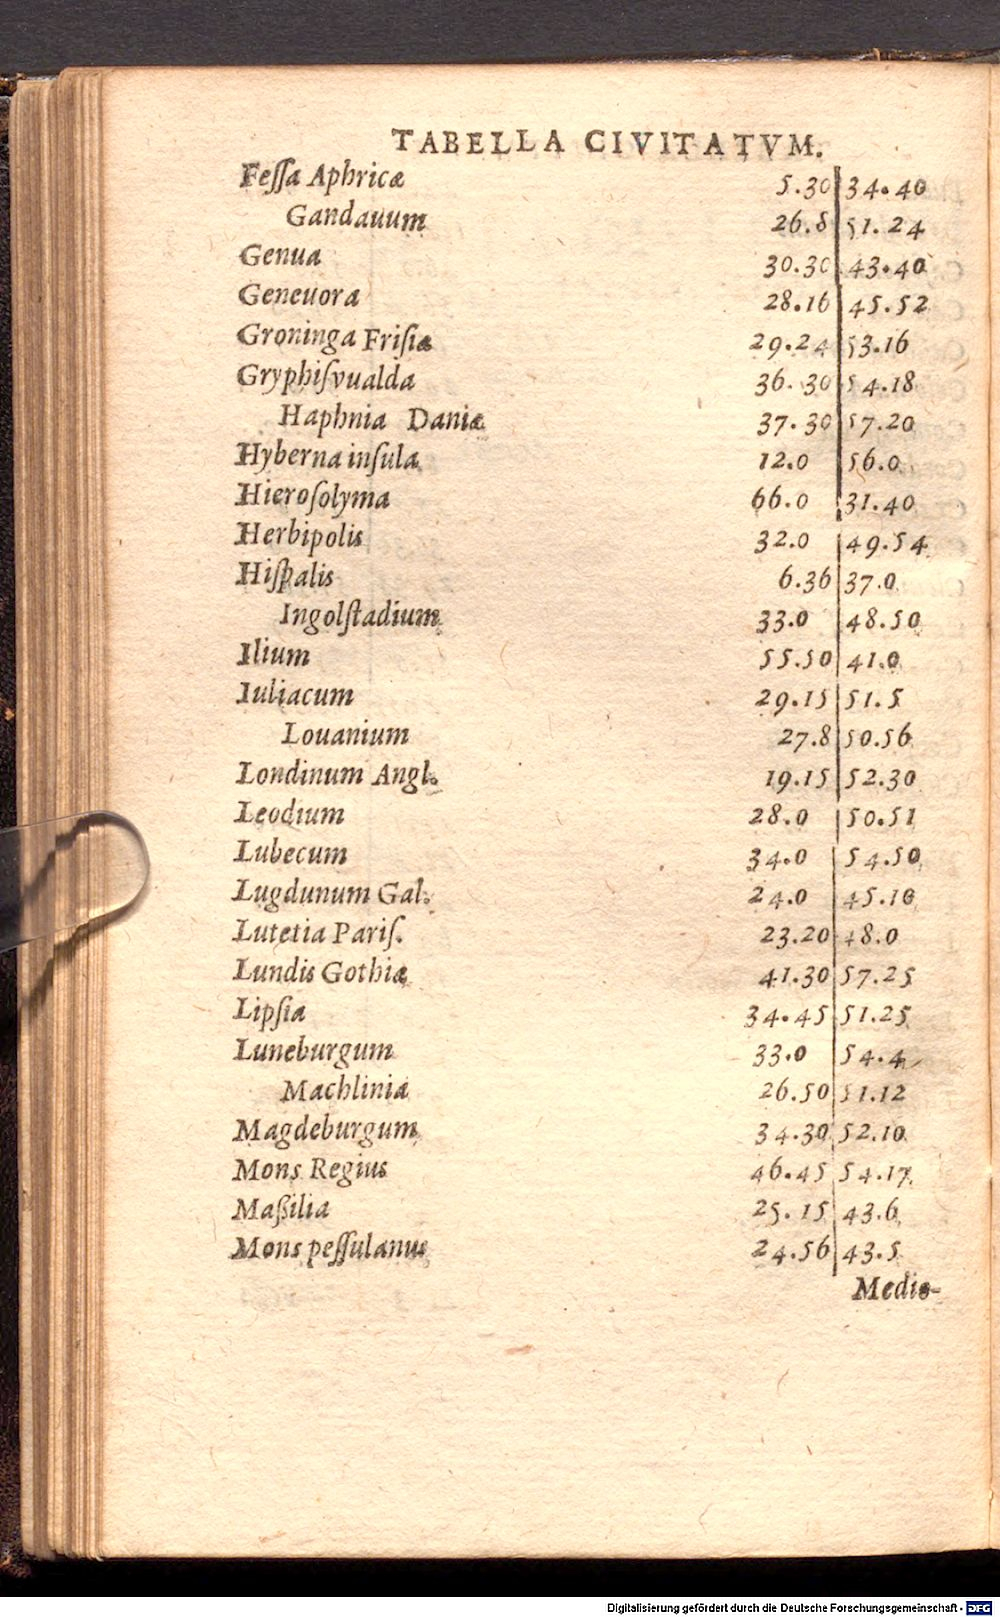 TABELLA CIVITATVM.
Feſſa Aphricæ 5.30 34.40
Gandauum 26.8 51.24
Genua 30.30 43.40
Geneuora 28.16 45.52
Groninga Friſiæ 29.24 53.16
Gryphiſvualda 36.30 54.18
Haphnia Daniæ 37.30 57.20
Hyberna inſula 12.0 56.0
Hieroſolyma 66.0 31.40
Herbipolis 32.0 49.54
Hiſpalis 6.36 37.0
Ingolſtadium 33.0 48.50
Ilium 55.50 41.0
Iuliacum 29.15 51.5
Louanium 27.8 50.56
Londinum Angl. 19.15 52.30
Leodium 28.0 50.51
Lubecum 34.0 54.50
Lugdunum Gal. 24.0 45.10
Lutetia Pariſ. 23.20 48.0
Lundis Gothiæ 41.30 57.25
Lipſia 34.45 51.25
Luneburgum 33.0 54.4
Machlinia 26.50 51.12
Magdeburgum 34.30 52.10
Mons Regius 46.45 54.17
Maßilia 25.15 43.6
Mons peſſulanus 24.56 43.5
Medio-
Digitalisierung gefördert durch die Deutsche Forschungsgemeinschaft - DFG